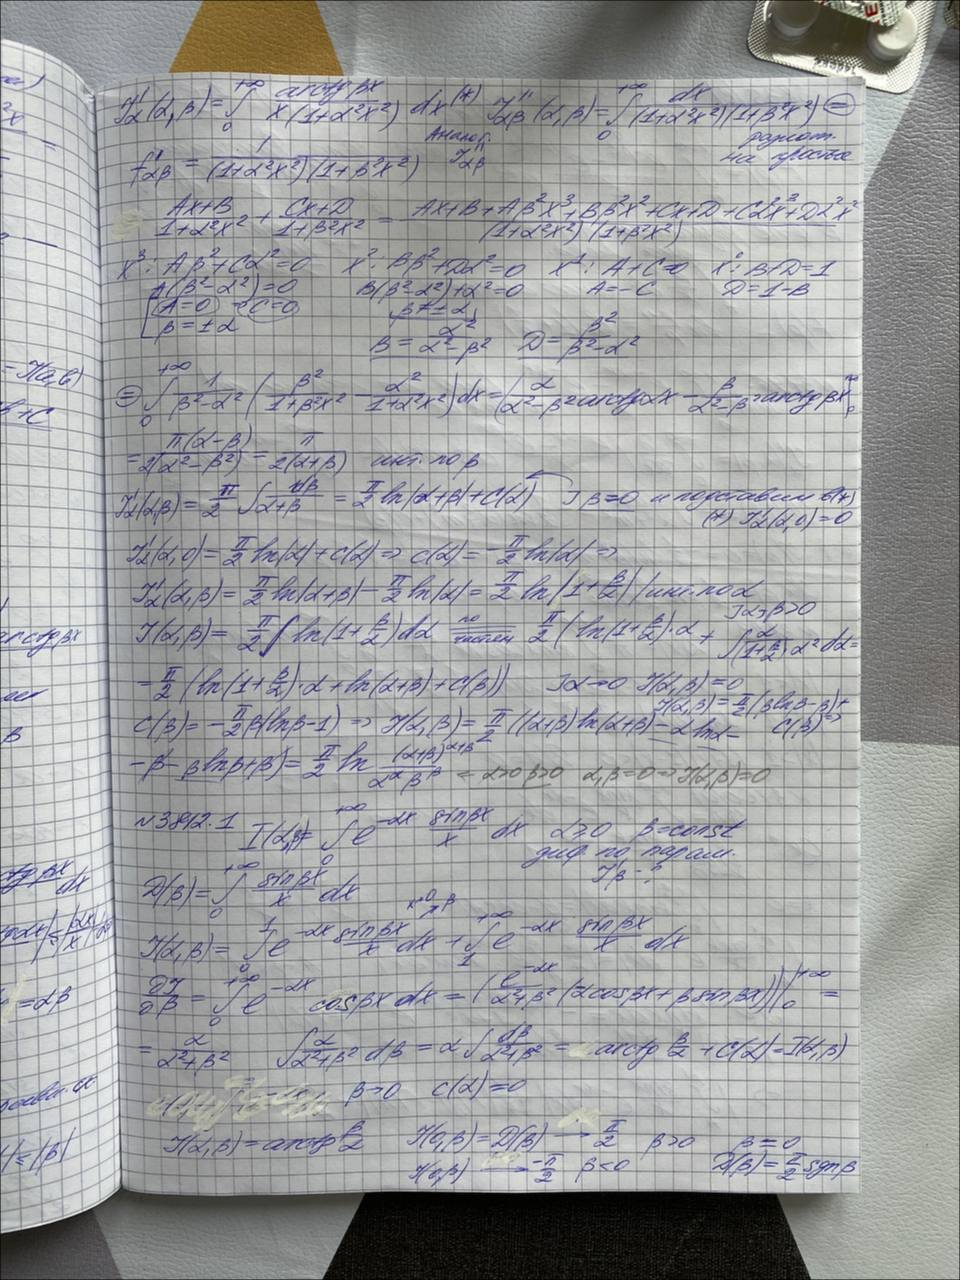 I'_α(α,β) = ∫_0^{+∞} arctg βx / x(1+α²x²) dx (*) I''_{αβ}(α,β) = ∫_0^{+∞} dx / (1+α²x²)(1+β²x²) =
Аналог. I''_{αβ} разлож. на простые
f''_{αβ} = 1 / (1+α²x²)(1+β²x²)
Ax+B / 1+α²x² + Cx+D / 1+β²x² = Ax+B+Aβ²x³+Bβ²x²+Cx+D+Cα²x³+Dα²x² / (1+α²x²)(1+β²x²)
x³: Aβ²+Cα²=0 x²: Bβ²+Dα²=0 x¹: A+C=0 x⁰: B+D=1
A(β²-α²)=0 B(β²-α²)+α²=0 A=-C D=1-B
[A=0 ⇒ C=0 β≠±α
β=±α B = α² / α²-β² D = β² / β²-α²
= ∫_0^{+∞} 1 / β²-α² (β² / 1+β²x² - α² / 1+α²x²) dx = (α / α²-β² arctg αx - β / α²-β² arctg βx)|_0^{+∞}
= π(α-β) / 2(α²-β²) = π / 2(α+β) инт. по β
I'_α(α,β) = π/2 ∫ dβ / α+β = π/2 ln|α+β| + C(α) ] β=0 и подставим в (*)
(*) I'_α(α,0)=0
I'_α(α,0) = π/2 ln|α| + C(α) ⇒ C(α) = -π/2 ln|α| ⇒
I'_α(α,β) = π/2 ln|α+β| - π/2 ln|α| = π/2 ln|1+β/α| / инт. по α
] α>β>0
I(α,β) = π/2 ∫ ln(1+β/α) dα = по частям π/2 (ln(1+β/α)·α + ∫ α / (1+β/α)·α² dα =
= π/2 (ln(1+β/α)·α + ln(α+β) + C(β)) ] α→0 I(α,β)=0
I(α,β) = π/2 (β ln β - β) + C(β) ⇒
C(β) = -π/2 β(ln β-1) ⇒ I(α,β) = π/2 ((α+β) ln(α+β) - α ln α -
-β - β ln β + β) = π/2 ln (α+β)^{α+β} / α^α β^β = α>0 β>0 α,β=0 ⇒ I(α,β)=0
N3812.1 I(α,β) = ∫_0^{+∞} e^{-αx} sin βx / x dx α≥0 β=const
диф. по парам.
I'_β - ?
D(β) = ∫_0^{+∞} sin βx / x dx
x→0 β
I(α,β) = ∫_0^1 e^{-αx} sin βx / x dx + ∫_1^{+∞} e^{-αx} sin βx / x dx
∂I/∂β = ∫_0^{+∞} e^{-αx} cos βx dx = (e^{-αx} / α²+β² (-α cos βx + β sin βx))|_0^{+∞} =
= α / α²+β² ∫ α / α²+β² dβ = α ∫ dβ / α²+β² = arctg β/α + C(α) = I(α,β)
β→0 C(α)=0
I(α,β) = arctg β/α I(0,β) = D(β) → π/2 β>0 β=0
I(0,β) → -π/2 β<0 D(β) = π/2 sgn β